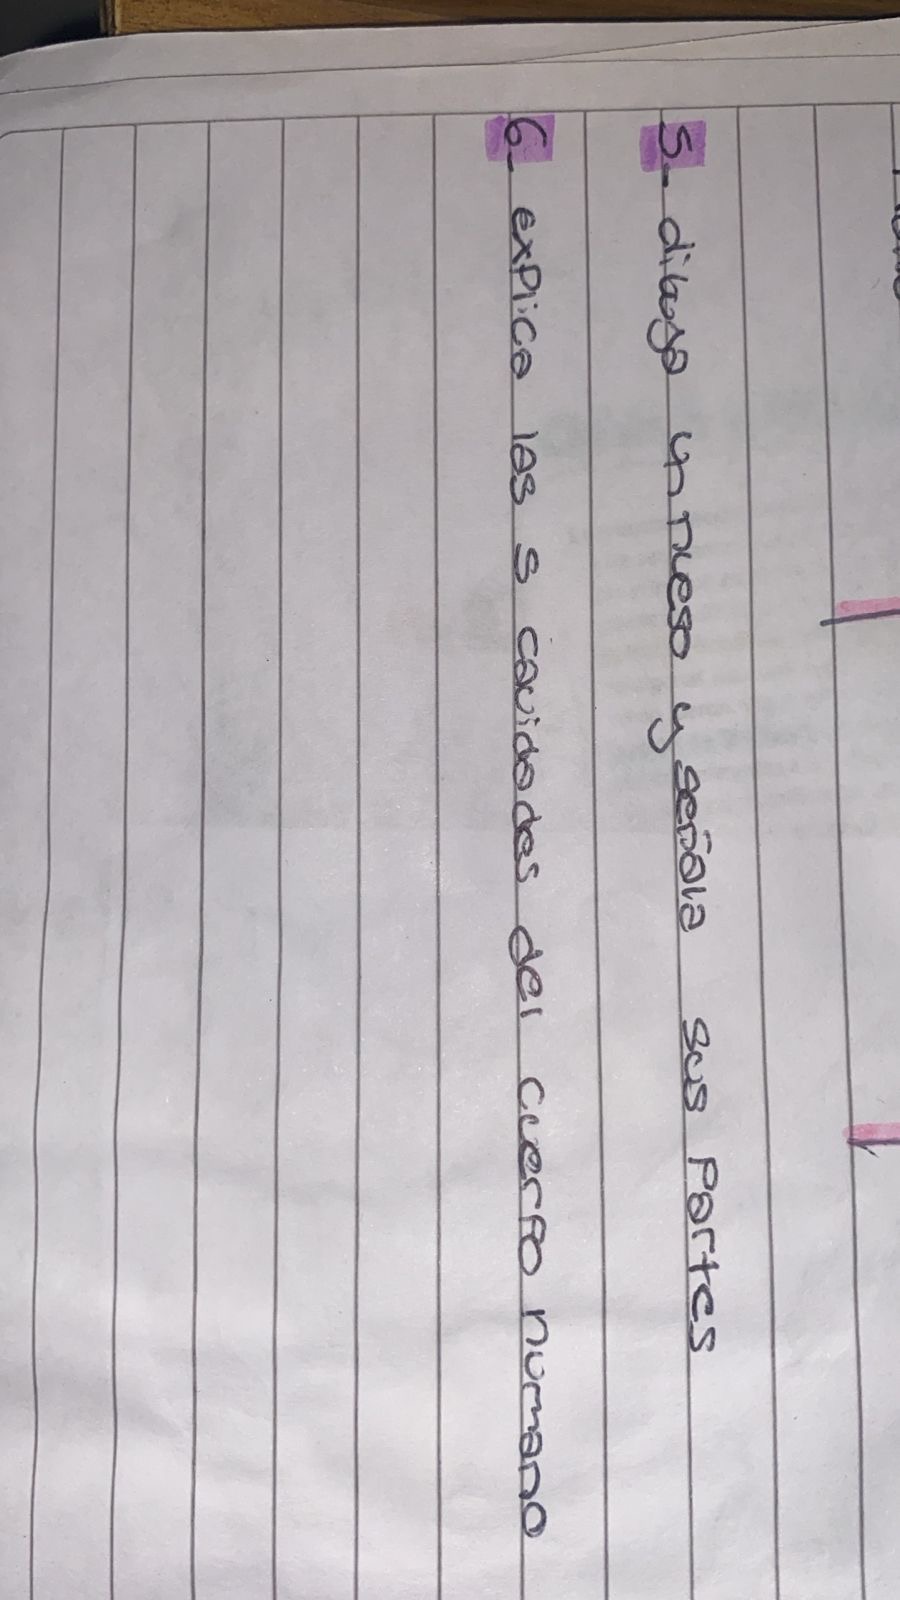 5- dibuja un hueso y señala sus Partes
6- explica las 5 cavidades del cuerpo humano